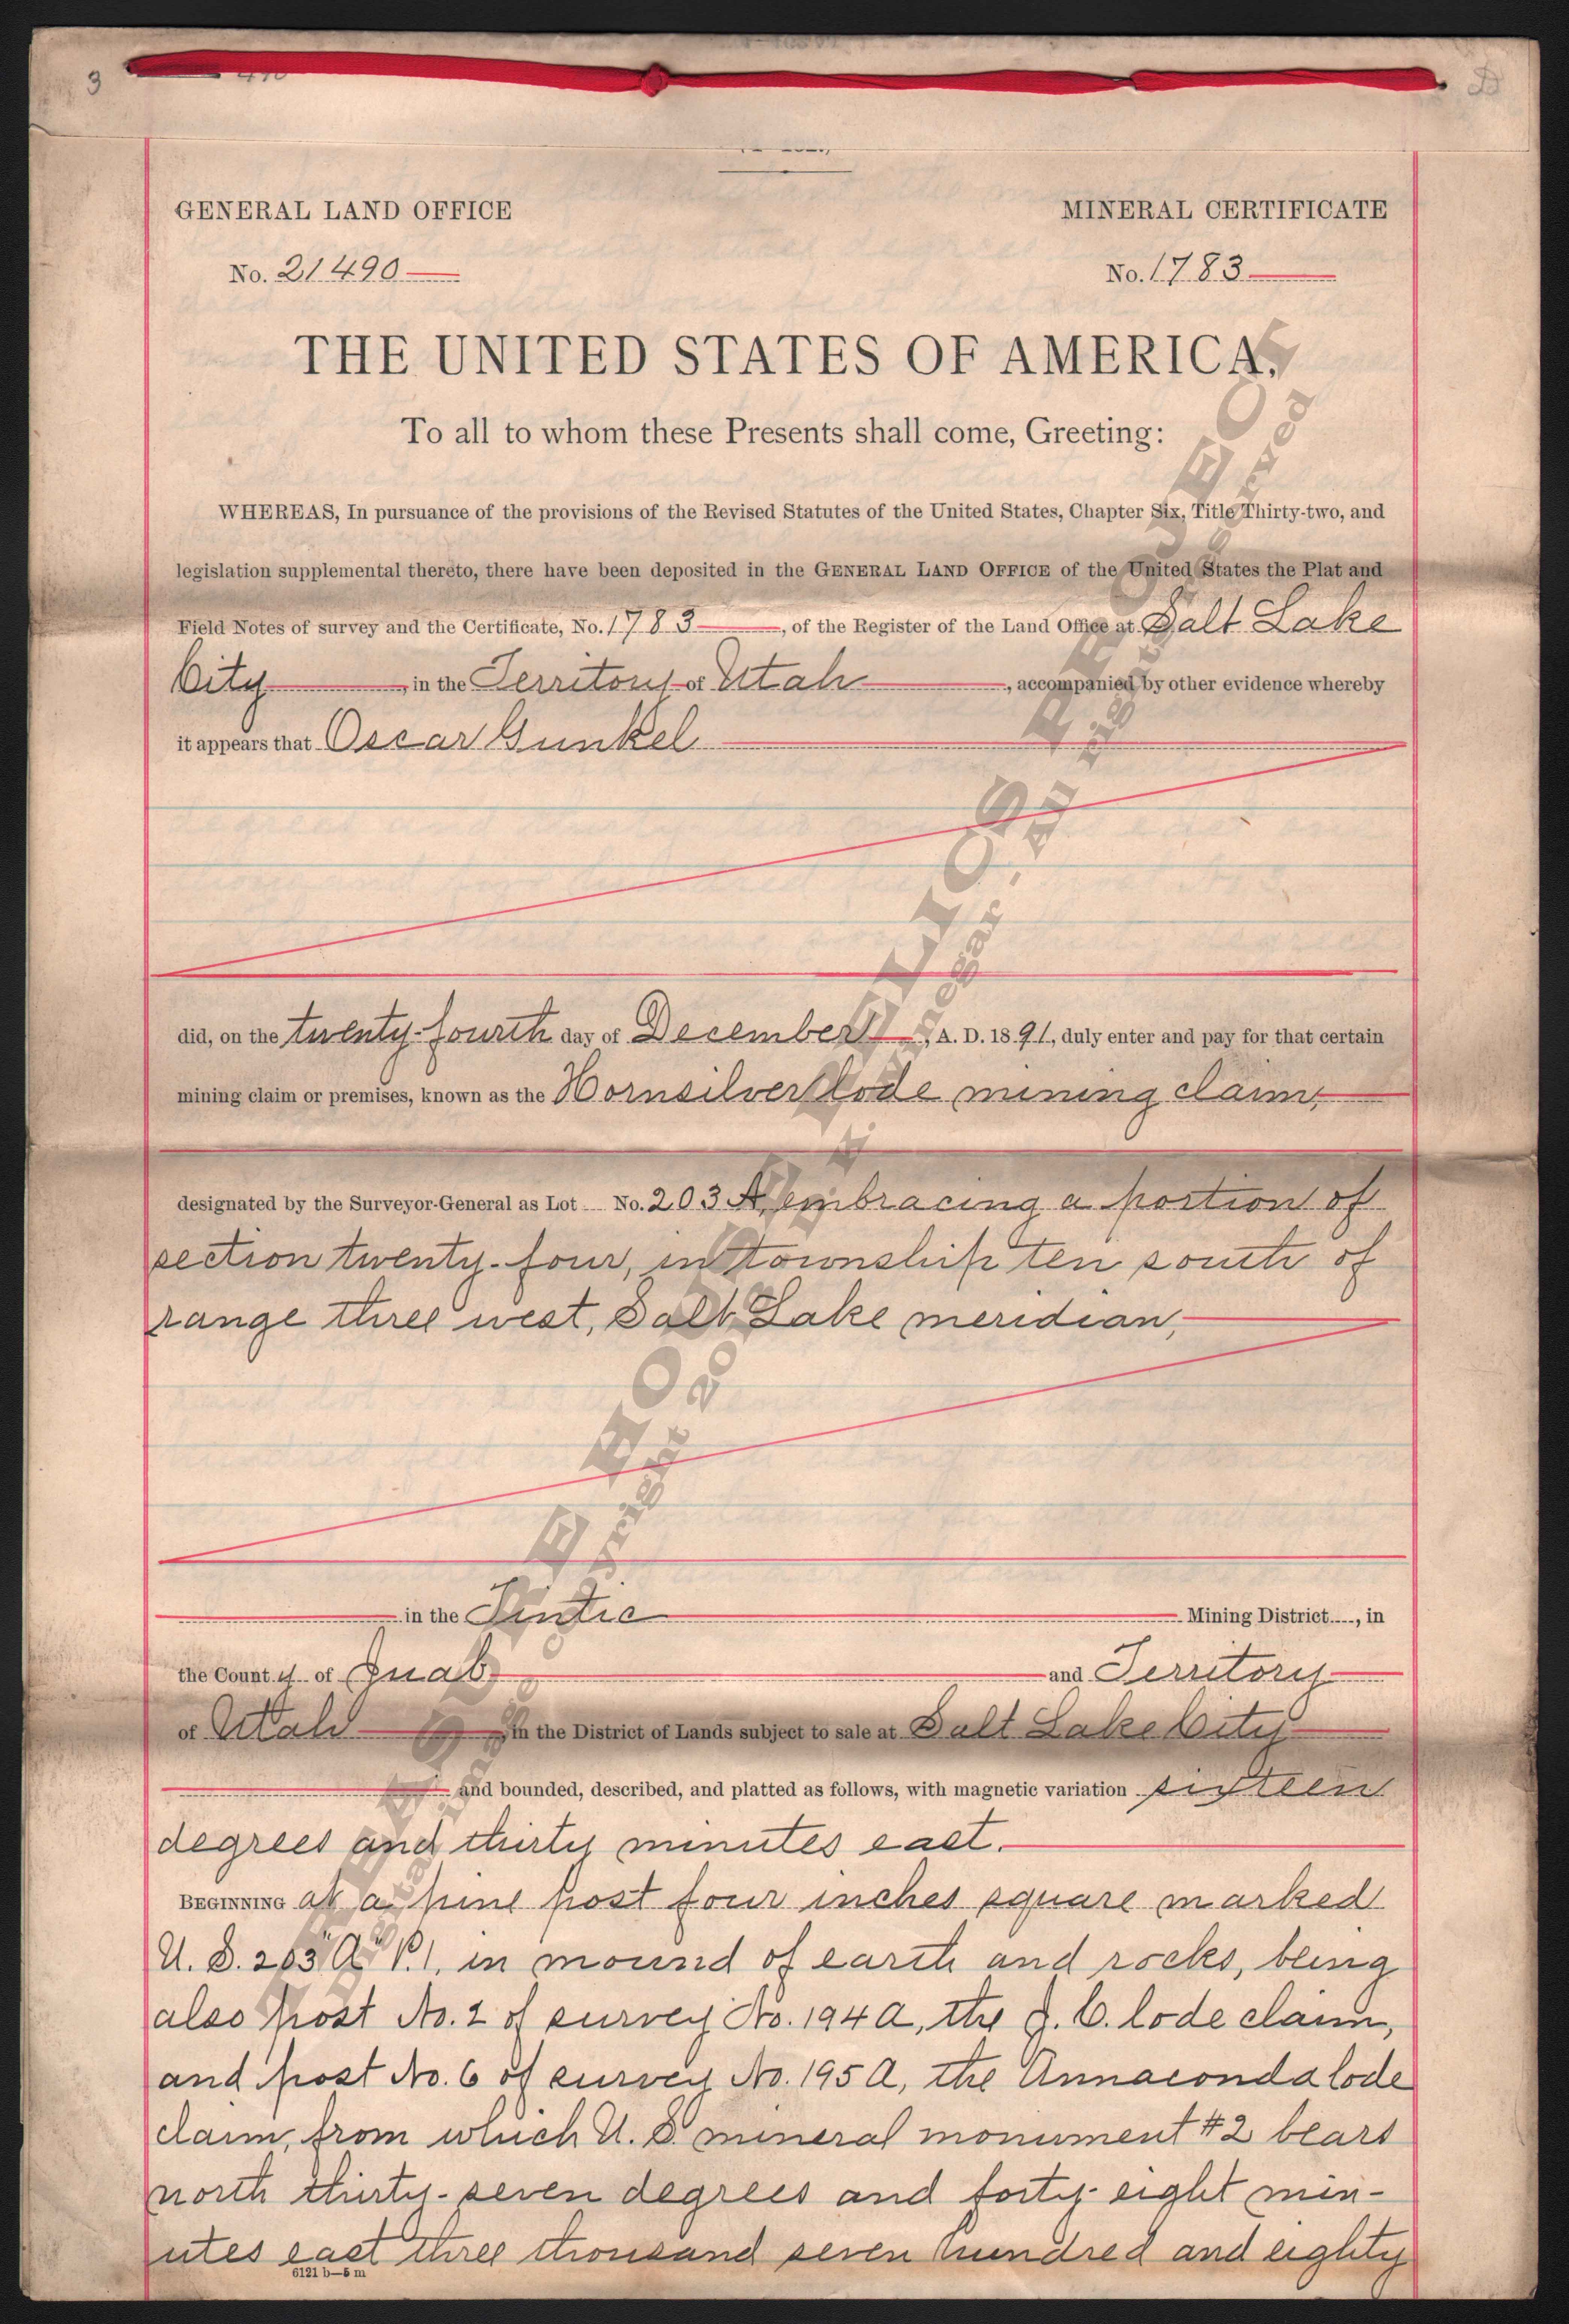 3
GENERAL LAND OFFICE
MINERAL CERTIFICATE
No. 21490
No. 1783
THE UNITED STATES OF AMERICA,
To all to whom these Presents shall come, Greeting:
WHEREAS, In pursuance of the provisions of the Revised Statutes of the United States, Chapter Six, Title Thirty-two, and
legislation supplemental thereto, there have been deposited in the GENERAL LAND OFFICE of the United States the Plat and
Field Notes of survey and the Certificate, No. 1783, of the Register of the Land Office at Salt Lake
City, in the Territory of Utah, accompanied by other evidence whereby
it appears that Oscar Gunkel
did, on the twenty-fourth day of December, A. D. 1891, duly enter and pay for that certain
mining claim or premises, known as the Hornsilver lode mining claim,
designated by the Surveyor-General as Lot No. 203 A, embracing a portion of
section twenty-four, in township ten south of
range three west, Salt Lake meridian,
in the Tintic Mining District, in
the County of Juab and Territory
of Utah, in the District of Lands subject to sale at Salt Lake City
and bounded, described, and platted as follows, with magnetic variation sixteen
degrees and thirty minutes east.
BEGINNING at a pine post four inches square marked
U. S. 203 "A" P. 1, in mound of earth and rocks, being
also post No. 2 of survey No. 194 A, the J. C. lode claim,
and post No. 6 of survey No. 195 A, the Annaconda lode
claim, from which U. S. mineral monument #2 bears
north thirty-seven degrees and forty-eight min-
utes east three thousand seven hundred and eighty
6121 b—5 m
TREASURE HOUSE RELICS PROJECT
Digital image copyright 2018 D. K. Vinegar - All rights reserved